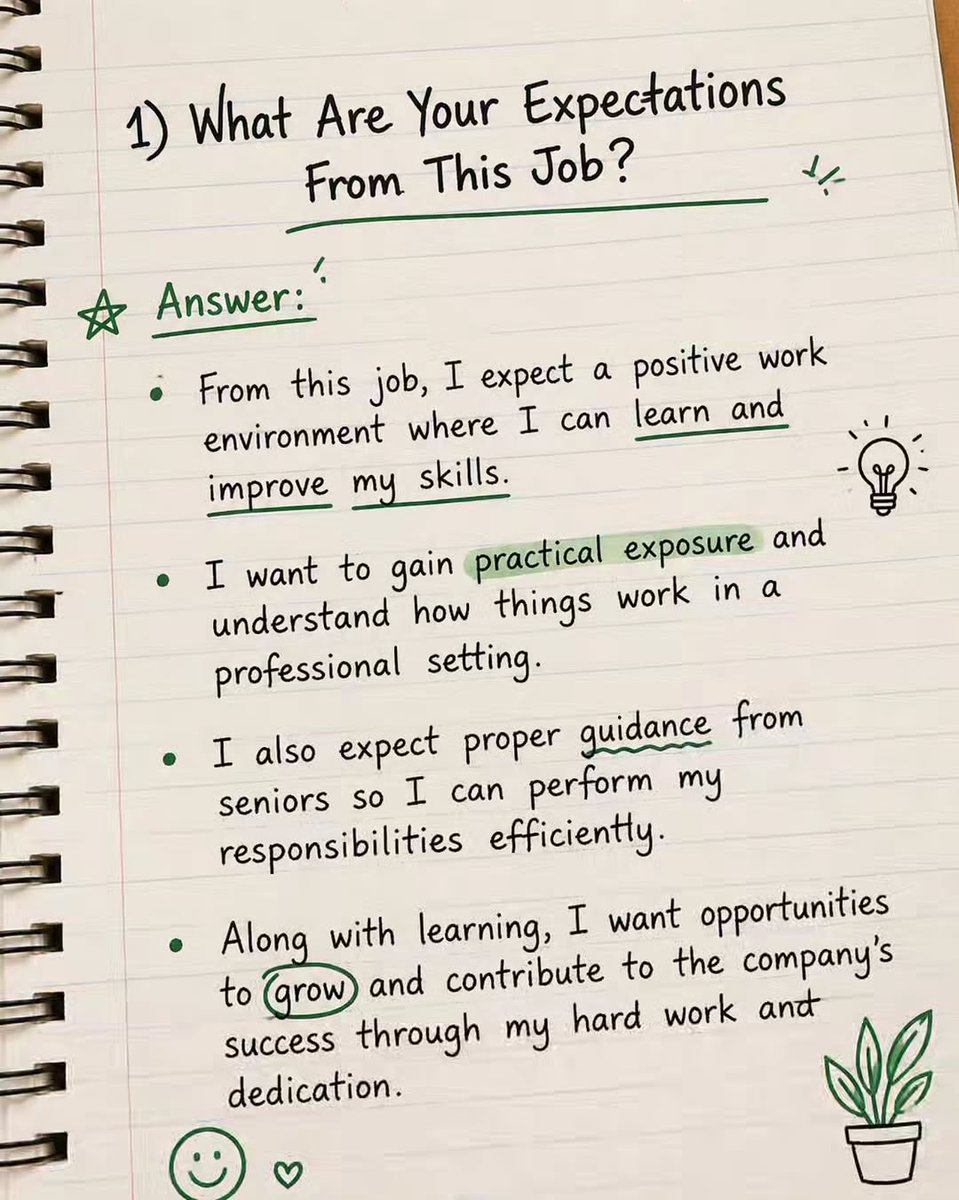 1) What Are Your Expectations
From This Job?
Answer:
• From this job, I expect a positive work
environment where I can learn and
improve my skills.
• I want to gain practical exposure and
understand how things work in a
professional setting.
• I also expect proper guidance from
seniors so I can perform my
responsibilities efficiently.
• Along with learning, I want opportunities
to grow and contribute to the company's
success through my hard work and
dedication.